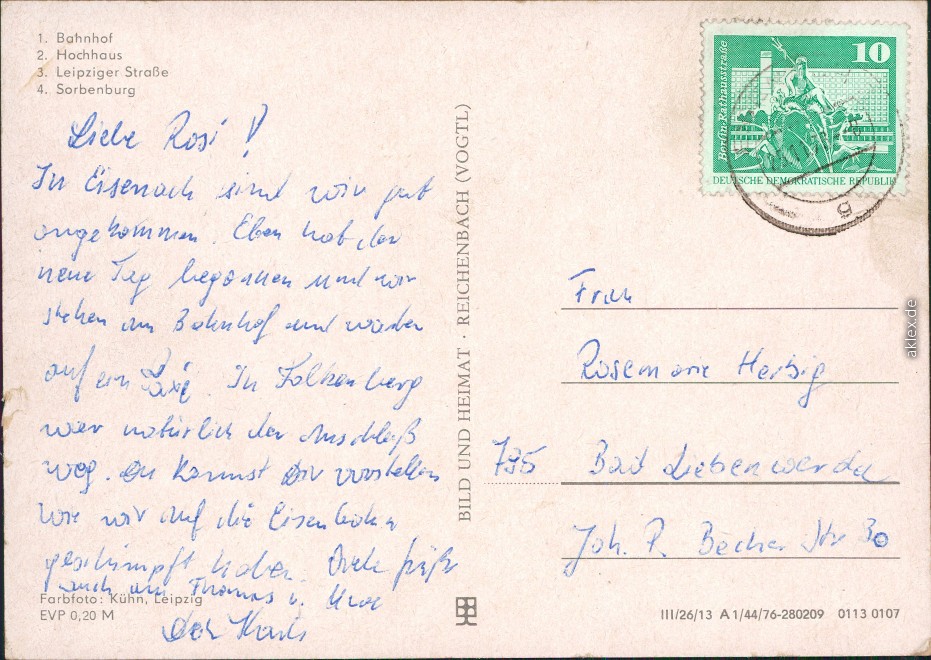 1. Bahnhof
2. Hochhaus
3. Leipziger Straße
4. Sorbenburg
Liebe Rosi!
In Eisenach sind wir gut
angekommen. Eben hat der
neue Tag begonnen und wir
stehen am Bahnhof und warten
auf ein Taxi. In Falkenberg
war natürlich der Anschluß
weg. Du kannst Dir vorstellen
wie wir auf die Eisenbahn
geschimpft haben. Viele Grüße
auch an Thomas u.
Farbfoto: Kühn, Leipzig
EVP 0,20 M
BILD UND HEIMAT · REICHENBACH (VOGTL)
Berlin-Rathausstraße
10
DEUTSCHE DEMOKRATISCHE REPUBLIK
g
Frau
Rosemarie Herbig
795 Bad Liebenwerda
Joh. R. Becher Str 30
III/26/13 A 1/44/76-280209 0113 0107
aklex.de